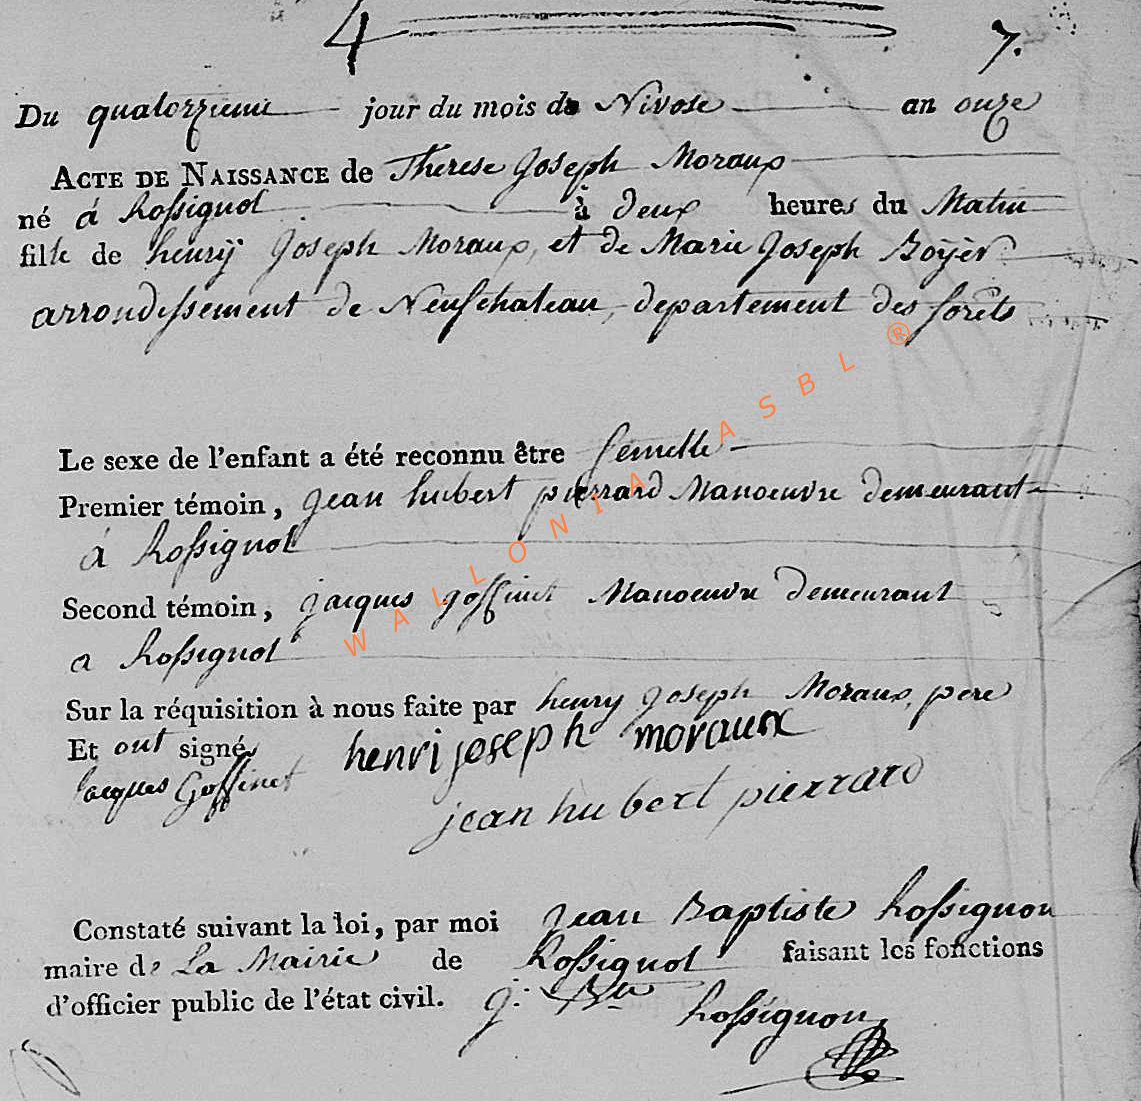 4
7.
Du quatorzieme jour du mois de Nivose an onze
ACTE DE NAISSANCE de Therese Joseph Moraux
né á Rossignol à deux heures du Matin
fille de henrÿ Joseph Moraux, et de Marie Joseph Boÿèr
arrondissement de Neufchateau, departement des forêts
Le sexe de l'enfant a été reconnu être femelle
Premier témoin, jean hubert pierrard Manoeuvre demeurant
á Rossignol
Second témoin, jacques goffinet Manoeuvre demeurant
a Rossignol
Sur la réquisition à nous faite par henry joseph Moraux, pere
Et ont signé
henri joseph moraux
Jacques Goffinet
jean hubert pierrard
Constaté suivant la loi, par moi Jean Baptiste Rossignon
maire de La Mairie de Rossignol faisant les fonctions
d'officier public de l'état civil. J. Bte Rossignon
WALLONIA ASBL ®